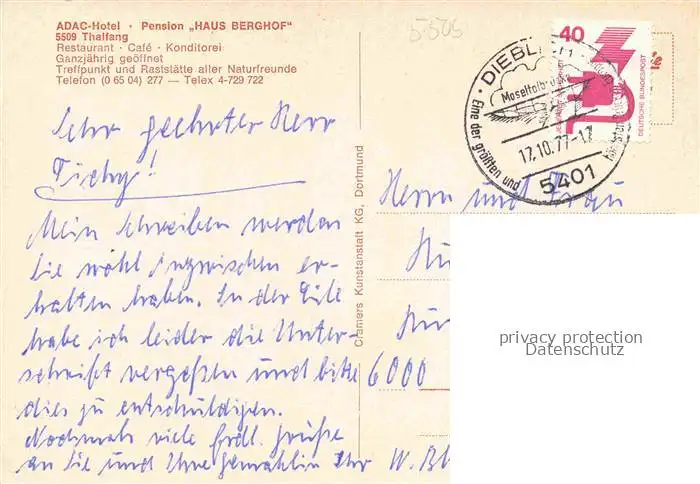 ADAC-Hotel · Pension „HAUS BERGHOF"
5509 Thalfang
Restaurant · Café · Konditorei
Ganzjährig geöffnet
Treffpunkt und Raststätte aller Naturfreunde
Telefon (0 65 04) 277 — Telex 4-729 722
5-505
Sehr geehrter Herr
Tichy!
Mein Schreiben werden
Sie wohl inzwischen er-
halten haben. In der Eile
habe ich leider die Unter-
schrift vergeßen und bitte
dies zu entschuldigen.
Nochmals viele frdl. Grüße
an Sie und Ihre Gemahlin Ihr W.
Cramers Kunstanstalt KG, Dortmund
40
DEUTSCHE BUNDESPOST
DIEBL
Moseltalbrücke
Eine der größten und
17.10.77-17
5401
Herrn und Frau
6000
privacy protection
Datenschutz